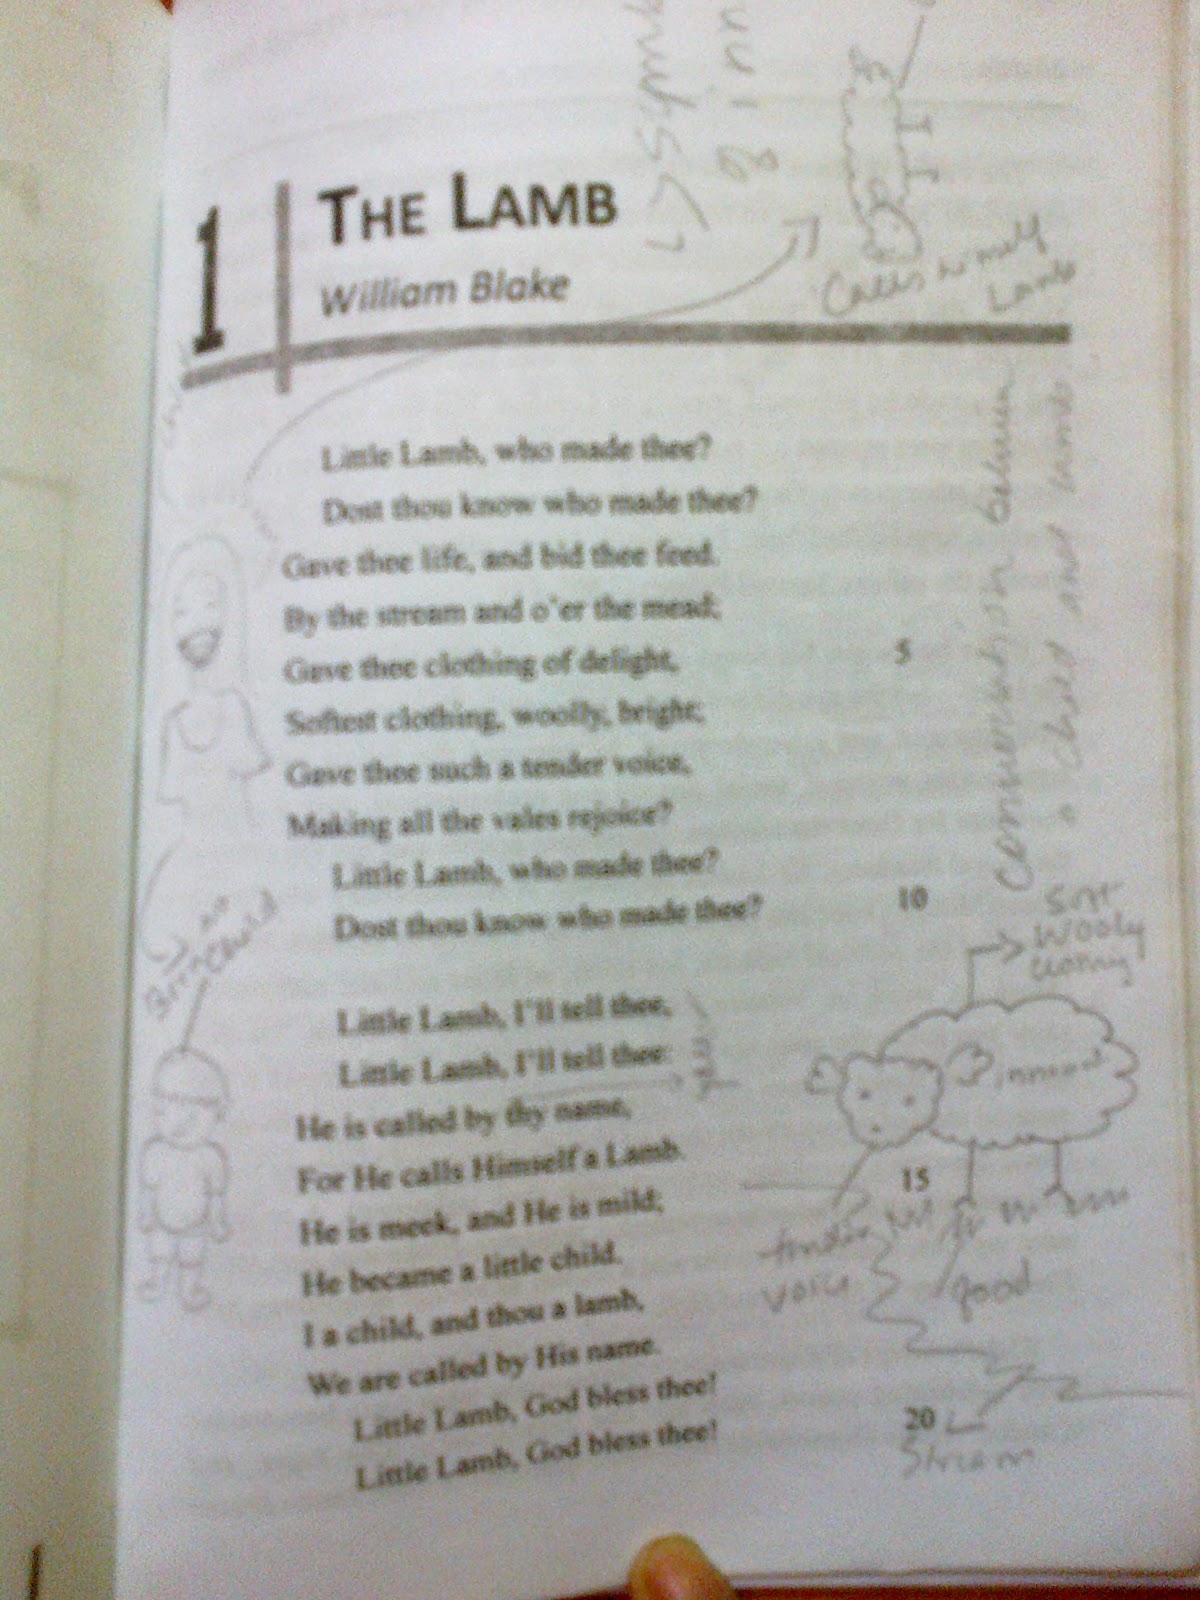 1
THE LAMB
William Blake
Calls himself
Lamb
Little Lamb, who made thee?
Dost thou know who made thee?
Gave thee life, and bid thee feed.
By the stream and o'er the mead;
Gave thee clothing of delight, 5
Softest clothing, woolly, bright;
Gave thee such a tender voice,
Making all the vales rejoice?
Little Lamb, who made thee?
Dost thou know who made thee? 10
Little Lamb, I'll tell thee,
Little Lamb, I'll tell thee:
He is called by thy name,
For He calls Himself a Lamb.
He is meek, and He is mild; 15
He became a little child.
I a child, and thou a lamb,
We are called by His name.
Little Lamb, God bless thee!
Little Lamb, God bless thee! 20
child and lamb
Soft
Wooly
innocent
tender
voice
food
Stream
Born as
child